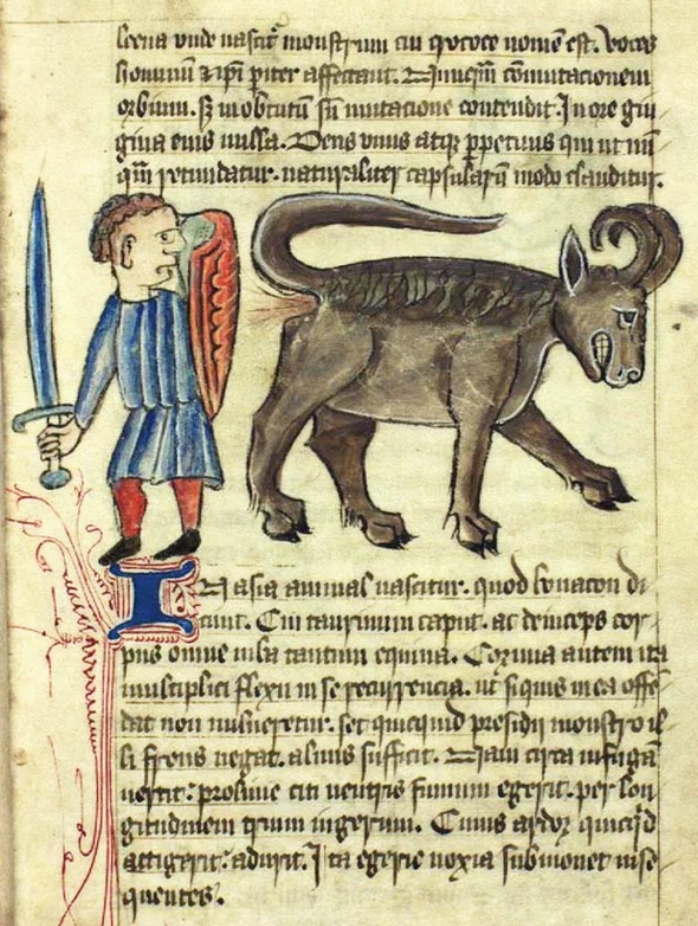 leena unde nascit᷑ monstrum cui nomē est. voces
hominū ⁊ ipī pit̄er affectant. Nūqͣm cōmutacionem
orbium. sꝫ in obtutū sū mutacione contendit. In ore gin
giua eius nulla. Dens unus atqꝫ ꝑpetuus qui ut nū
qͣm retundatur. naturaliter capsularū modo clauditur.
IN asia animal nascitur. quod bonacon di
cunt. Cui taurinum caput. ac deinceps cor
pus omne iuba tantum equina. Cornua autem ita
multiplici flexu in se recurrencia. ut siquis in ea offē
dat non uulneretur. set quicquid presidii monstro il
li frons negat. aluus sufficit. Nam in fugā
uertit: proluuie citi uentris fimum egerit. per lon
gitudinem trium iugerum. Cuius ardor quicqͥd
attigerit: adurit. Ita egerie noxia submouet inse
quentes.